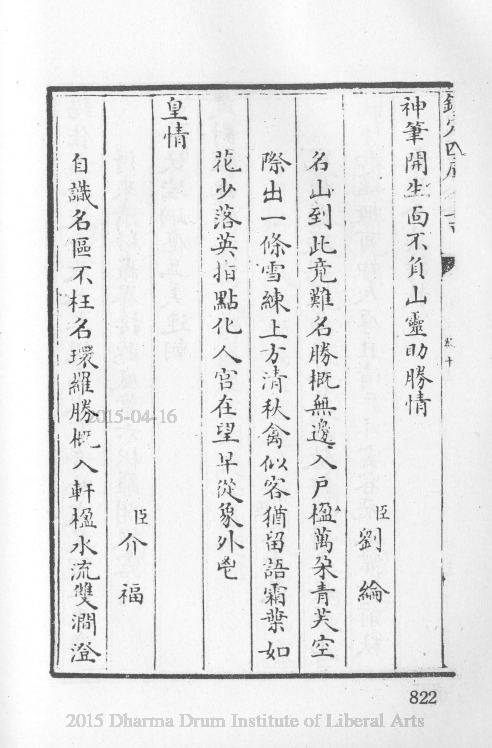 欽定四庫全書
神筆開生面不負山靈助勝情
臣劉綸
名山到此竟難名勝概無邊入戶楹萬朶青芙空
際出一條雪練上方清秋禽似客猶留語霜葉如
花少落英指點化人宮在望早從象外㐌
皇情
臣介福
自識名區不枉名環羅勝概入軒楹水流雙澗澄
822
2015-04-16
2015 Dharma Drum Institute of Liberal Arts